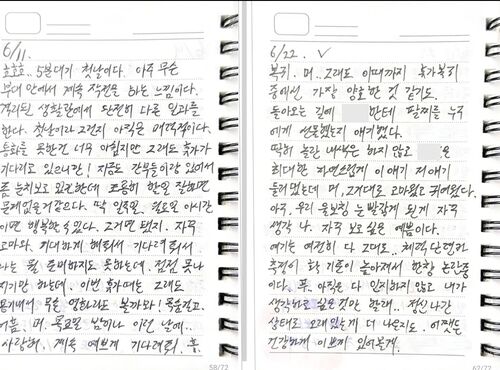 6/11.
호호호. 5분대기 첫날이다. 아주 무슨
부대 안에서 계속 작전을 하는 느낌이다.
격리된 생활관에서 단전히 다른 일과를
한다. 첫날이라 그런지 아직은 매력적이다.
통화를 못한건 너무 아쉽지만 그래도 휴가
기다리고 있으니깐! 지금도 간부들이랑 있어서
좀 눈치보고 있긴한데 조용히 할일 잘하면
문제없을거같으다. 딱 일주일, 월요일 이시간
이면 행복한 있다. 그거면 됐지. 자주
고마와. 기대하게 해줘서 기다려줘서
나는 뭘 준비하지도 못하는데. 점점 못나
지기만 하는데. 이번 휴가에는 그래도
용기내서 무슨 영화라도 볼까와!
어들. 머. 목요일 밤이나 이런 날에..
사랑해. 계속 예쁘게 기다려줘. 흠.
58/72
6/22. ✓
복귀. 머.. 그래도 이때까지 휴가복귀
중에선 가장 양호한 것 같기도.
돌아오는 길에 한테 팔찌를 누구
에게 선물했는지 얘기했다.
딱히 놀란 내색은 하지 않고 은
최대한 자연스럽게 이 얘기 저 얘기
들려줬는데 머, 그대로 고마웠고 귀여웠다.
아우, 우리 울보칭 눈 빨갛게 된게 자꾸
생각 나. 자꾸 보고 싶은 예쁨이다.
여기는 여전히 다 그대로.. 체력단련과
측정이 확 기준이 높아져서 한창 논란중
이다. 뭐. 아직은 다 인지하지 않고 내가
생각하고 싶은 것만 할래.. 정신나간
상태로 오래있는게 더 나은지도. 어쨋든
건강하게 이쁘게 있어볼게.
62/72